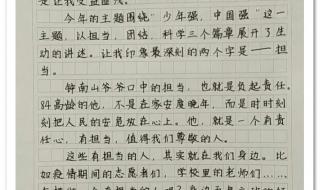 是让我受益匪浅。
今年的主题围绕"少年强,中国强"这一
主题,以担当,团结,科学三个篇章展开了生
动的讲述。让我印象最深刻的两个字是——担
当。
钟南山爷爷口中的担当,也就是负起责任。
84高龄的他,不是在家安度晚年,而是时时刻
刻把人民的安危放在心上。他,就是一个有责
任心,有担当,值得我们尊敬的人。
这些有担当的人,其实就在我们身边。比
如疫情期间的志愿者们,学校里的老师们……